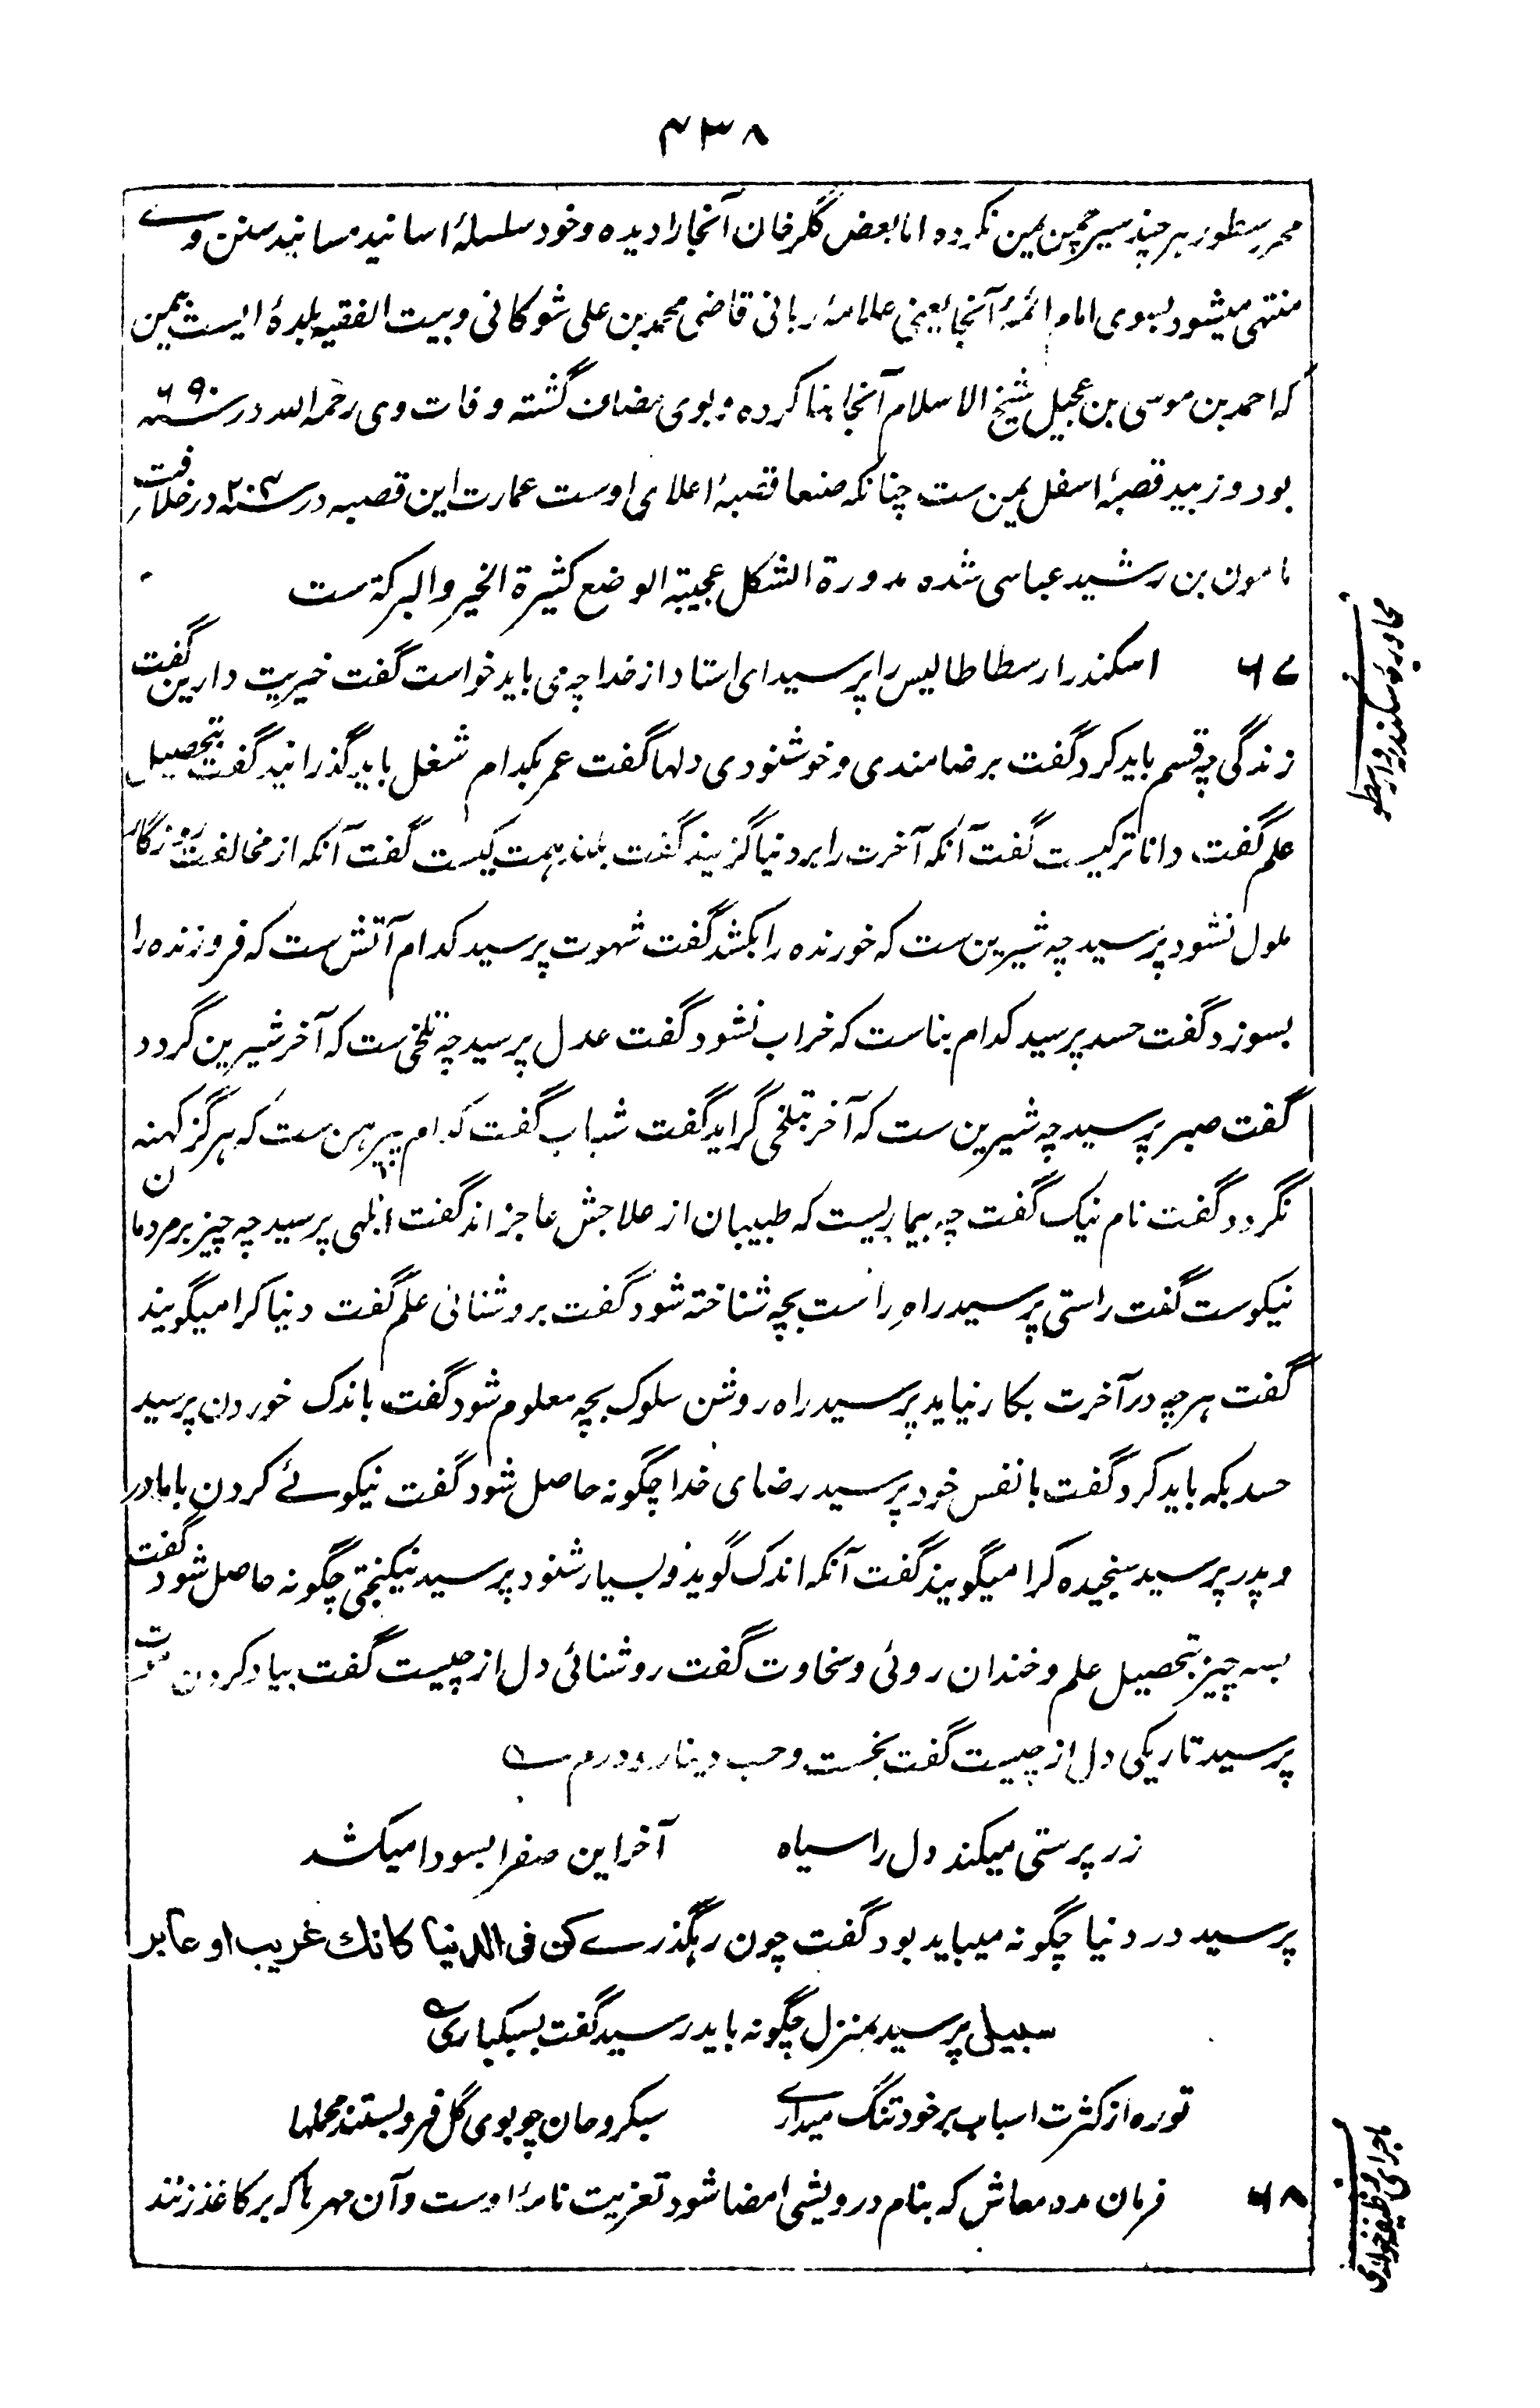 ۴۳۸
محرر سطور هر چند سیر چمن یمن نکرده اما بعض گلرخان آنجا را دیده و خود سلسلهٔ اسانید مسانید سنن وے
منتهی میشود بسوی امام ائمهٔ آنجا یعنی علامهٔ ربانی قاضی محمد بن علی شوکانی و بیت الفقیه بلدهٔ ایست بیمن
که احمد بن موسی بن عجیل شیخ الاسلام آنجا بنا کرده و بوی مضاف گشته وفات وی رحمه الله در سنه ۶۹۰
بود و زبید قصبهٔ اسفل یمن ست چنانکه صنعا قصبهٔ اعلای اوست عمارت این قصبه در سنه ۲۰۳ در خلافت
مامون بن رشید عباسی شده مدورة الشکل عجیبة الوضع کثیرة الخیر والبرکة ست
محاورهٔ سکندر و ارسطو
۶۷ اسکندر ارسطاطالیس را پرسید ای استاد از خدا چه می باید خواست گفت خیریت دارین گفت
زندگی چه قسم باید کرد گفت برضامندی و خوشنودی دلها گفت عمر بکدام شغل باید گذرانید گفت بتحصیل
علم گفت داناتر کیست گفت آنکه آخرت را بر دنیا گزیند گفت بلند همت کیست گفت آنکه از مخالفت روزگار
ملول نشود پرسید چه شیرین ست که خورنده را بکشد گفت شهوت پرسید کدام آتش ست که فروزنده را
بسوزد گفت حسد پرسید کدام بناست که خراب نشود گفت عدل پرسید چه تلخی ست که آخر شیرین گردد
گفت صبر پرسید چه شیرین ست که آخر بتلخی گراید گفت شباب گفت کدام پیرهن ست که هرگز کهنه
نگردد گفت نام نیک گفت چه بیماریست که طبیبان از علاجش عاجز اند گفت ابلهی پرسید چه چیز بر مردمان
نیکوست گفت راستی پرسید راهِ راست بچه شناخته شود گفت بروشنائی علم گفت دنیا کرا میگویند
گفت هرچه در آخرت بکار نیاید پرسید راه روشن سلوک بچه معلوم شود گفت باندک خوردن پرسید
حسد بکه باید کرد گفت با نفس خود پرسید رضای خدا چگونه حاصل شود گفت نیکوئے کردن با مادر
و پدر پرسید سنجیده کرا میگویند گفت آنکه اندک گوید و بسیار شنود پرسید نیکبختی چگونه حاصل شود گفت
بسه چیز بتحصیل علم و خندان روئی و سخاوت گفت روشنائی دل از چیست گفت بیاد کردن موت
پرسید تاریکی دل از چیست گفت بخست و حب دینار و درم ے
زر پرستی میکند دل را سیاه آخر این صفرا بسودا میکشد
پرسید در دنیا چگونه میباید بود گفت چون رهگذرے کن فی الدنیا کانك غریب او عابر
سبیل پرسید بمنزل چگونه باید رسید گفت بسبکباری
تو ره از کثرت اسباب بر خود تنگ میدارے سبکروحان چو بوی گل فرو بستند محملها
۶۸ فرمان مدد معاش که بنام درویشی امضا شود تعزیت نامهٔ اوست و آن مهرها که بر کاغذ زنند